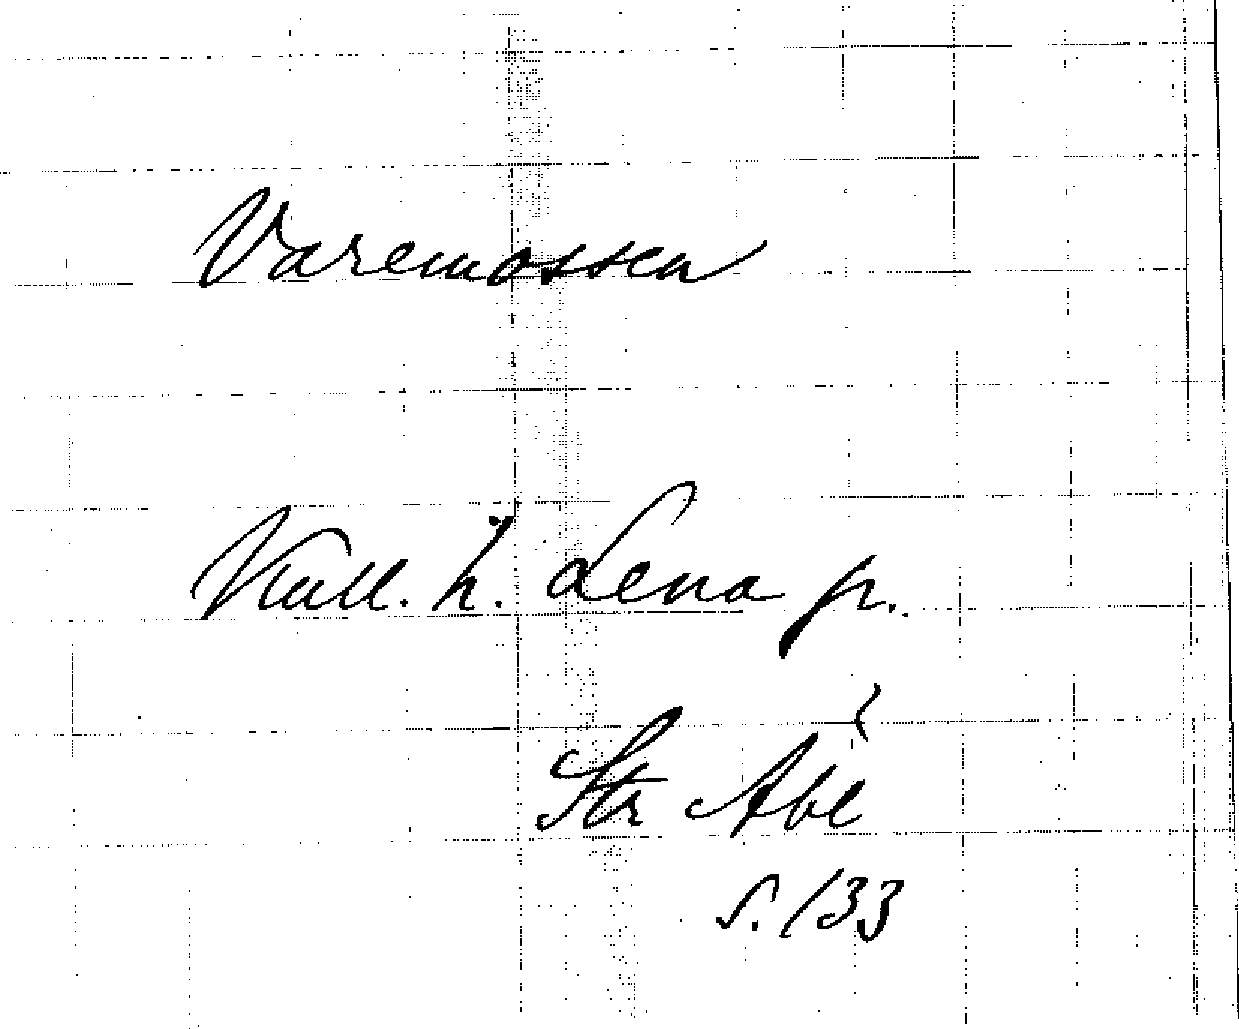 Varemossen
Kull. h. Lena sn.
Str Abl
s. 133